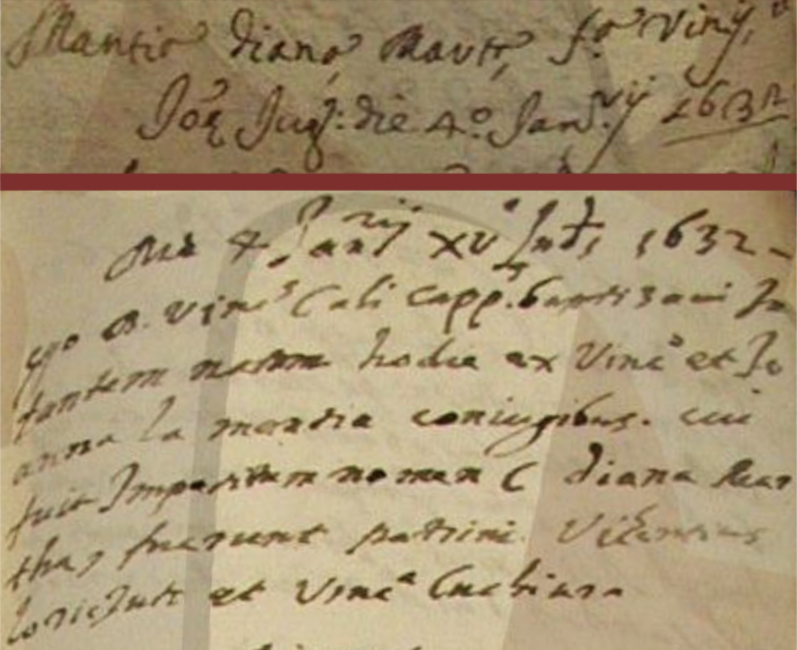 Mantio diana Mart, f.ª Vinij,
Joē Jug: die 4.º Jan.rij 1632
Die 4 Jan.rij XV Ind; 1632 -
ego D. Vinc.s Cali capp. baptizavi In
fantem natam hodie ex Vinc.º et Jo
anna la mantia coniugibus. cui
fuit Impositum nomen ( diana Mar
tha, fuerunt patrini Vicentius
et Vinc.a Cuchiara